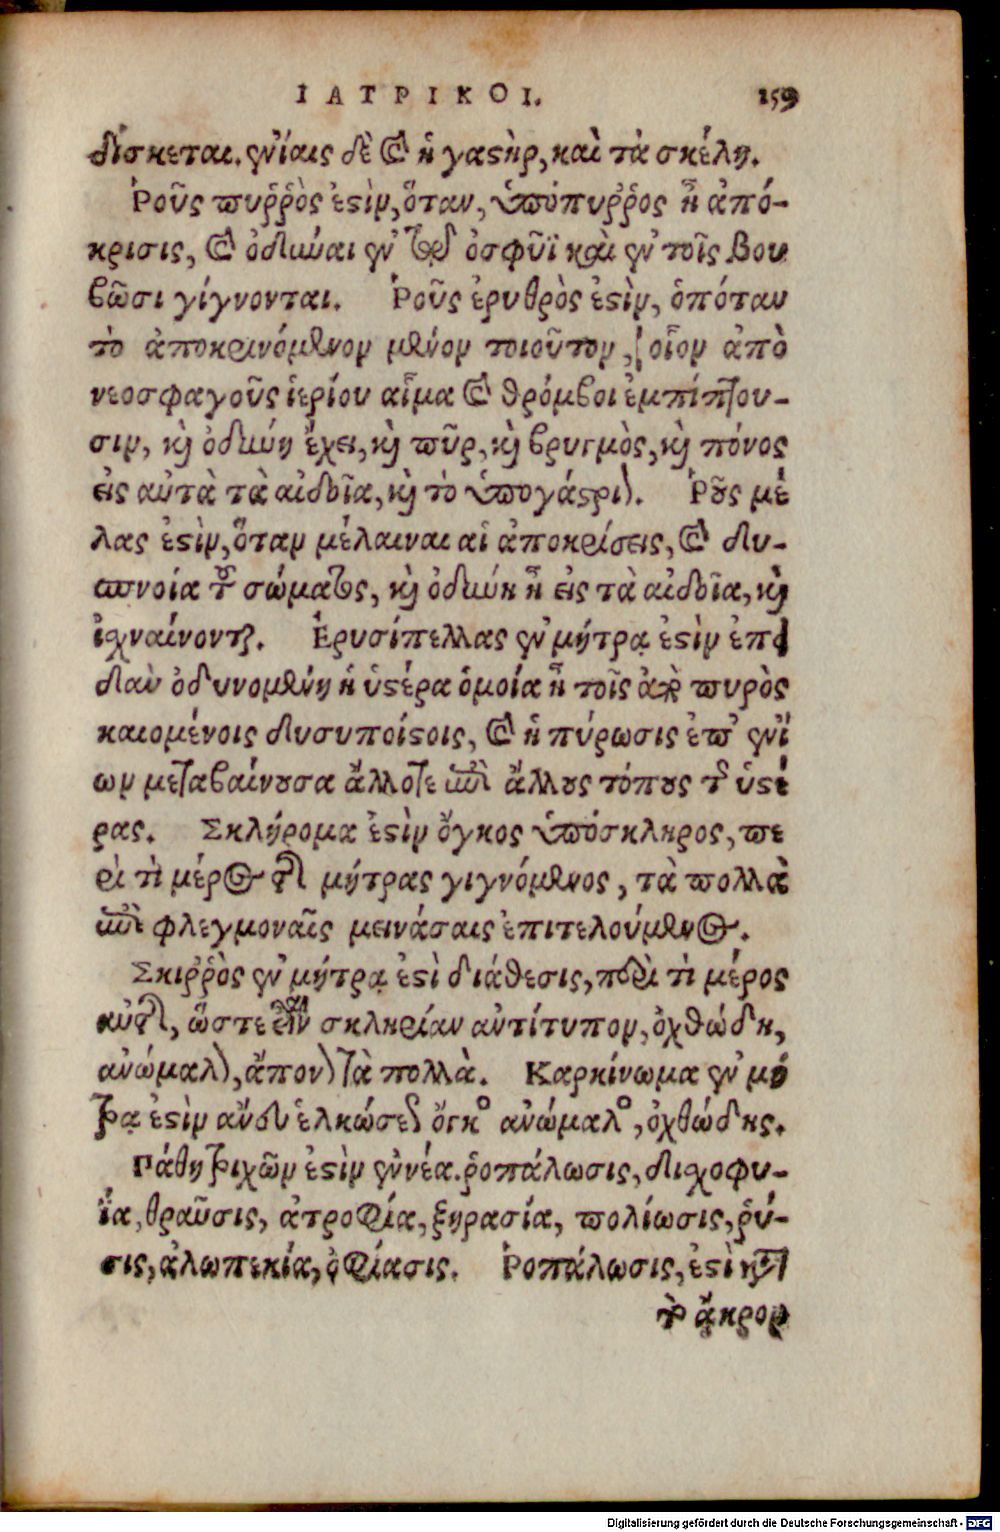 ΙΑΤΡΙΚΟΙ. 159
δίσκεται. ἐνίαις δὲ καὶ ἡ γαστὴρ, καὶ τὰ σκέλη.
Ῥοῦς πυῤῥὸς ἐστὶν, ὅταν, ὑπόπυῤῥος ᾖ ἀπό-
κρισις, καὶ ὀδύναι ἐν τῇ ὀσφῦϊ καὶ ἐν τοῖς βου
βῶσι γίγνονται. Ῥοῦς ἐρυθρὸς ἐστὶν, ὁπόταν
τὸ ἀποκρινόμενον μένον τοιοῦτον, οἷον ἀπὸ
νεοσφαγοῦς ἱερίου αἷμα καὶ θρόμβοι ἐμπίπτου-
σιν, καὶ ὀδύνη ἔχει, καὶ πῦρ, καὶ βρυγμὸς, καὶ πόνος
εἰς αὐτὰ τὰ αἰδοῖα, καὶ τὸ ὑπογάστριον. Ῥοῦς μέ
λας ἐστὶν, ὅταν μέλαιναι αἱ ἀποκρίσεις, καὶ δυ-
σπνοία τοῦ σώματος, καὶ ὀδύνη ᾖ εἰς τὰ αἰδοῖα, καὶ
ἰχναίνονται. Ἐρυσίπελλας ἐν μήτρᾳ ἐστὶν ἐπει
δὰν ὀδυνομένη ἡ ὑστέρα ὁμοία ᾖ τοῖς ἀπὸ πυρὸς
καιομένοις δυσυποίστοις, καὶ ἡ πύρωσις ἐπ' ἐνί
ων μεταβαίνουσα ἄλλοτε ἐπὶ ἄλλους τόπους τῆς ὑστέ
ρας. Σκλήρομα ἐστὶν ὄγκος ὑπόσκληρος, πε
ρί τι μέρος τῆς μήτρας γιγνόμενος, τὰ πολλὰ
ἐπὶ φλεγμοναῖς μεινάσαις ἐπιτελούμενος.
Σκιῤῥὸς ἐν μήτρᾳ ἐστὶ διάθεσις, περί τι μέρος
αὐτῆς, ὥστε εἶναι σκληρίαν αντίτυπον, ὀχθώδη,
ανώμαλον, ἄπονον τὰ πολλὰ. Καρκίνωμα ἐν μή
τρᾳ ἐστὶν ἄνευ ἑλκώσεως ὄγκος ἀνώμαλος, ὀχθώδης.
Πάθη τριχῶν ἐστὶν ἐννέα. ῥοπάλωσις, διχοφυ-
ΐα, θραῦσις, ἀτροφία, ξηρασία, πολίωσις, ῥύ-
σις, ἀλωπεκία, ὀφίασις. Ῥοπάλωσις, ἐστὶ κατὰ
τὸ ἄκρον
Digitalisierung gefördert durch die Deutsche Forschungsgemeinschaft - DFG